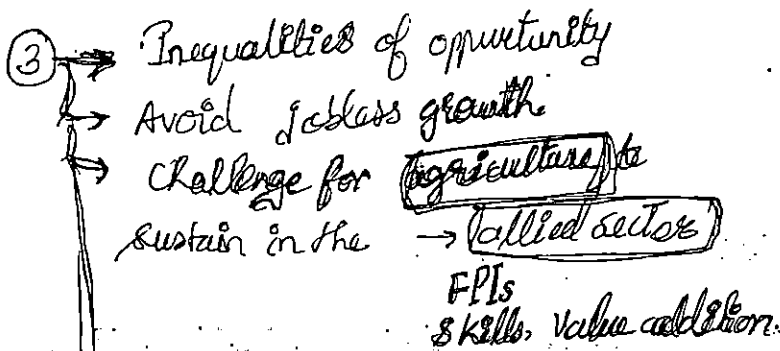 ③ → Inequalities of oppurtunity
→ Avoid jobless growth.
→ Challenge for agriculture to
sustain in the → allied sector
FPIs
skills, value addition.